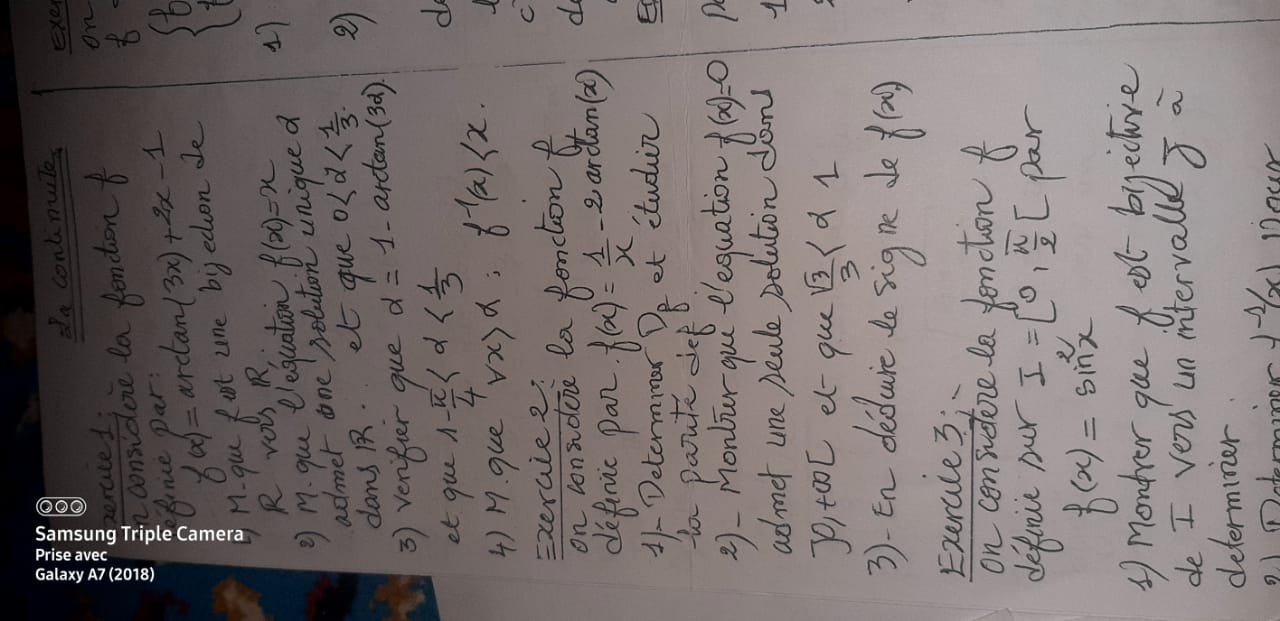 La continuité
Exercice 1:
on considère la fonction f
définie par:
f(x) = arctan(3x) + 2x - 1
1) M. que f est une bijection de
R vers R
2) M. que l'équation f(x) = x
admet une solution unique α
dans R. et que 0 < α < 1/3.
3) vérifier que α = 1 - arctan(3α).
et que 1 - π/4 < α < 1/3
4) M que ∀x > α ; f⁻¹(x) < x.
Exercice 2:
on considère la fonction f
définie par. f(x) = 1/x - 2 arctan(x)
1)- Determiner Df et étudier
la parité de f
2)- Montrer que l'equation f(x)=0
admet une seule solution dans
]0,+∞[ et que √3/3 < α < 1
3)- En déduire le signe de f(x)
Exercice 3:
On considère la fonction f
définie sur I = [0, π/2[ par
f(x) = sin²x
1) Montrer que f est bijective
de I vers un intervalle J à
determiner.
2)
Exer
on
f
1)
2)
Samsung Triple Camera
Prise avec
Galaxy A7 (2018)